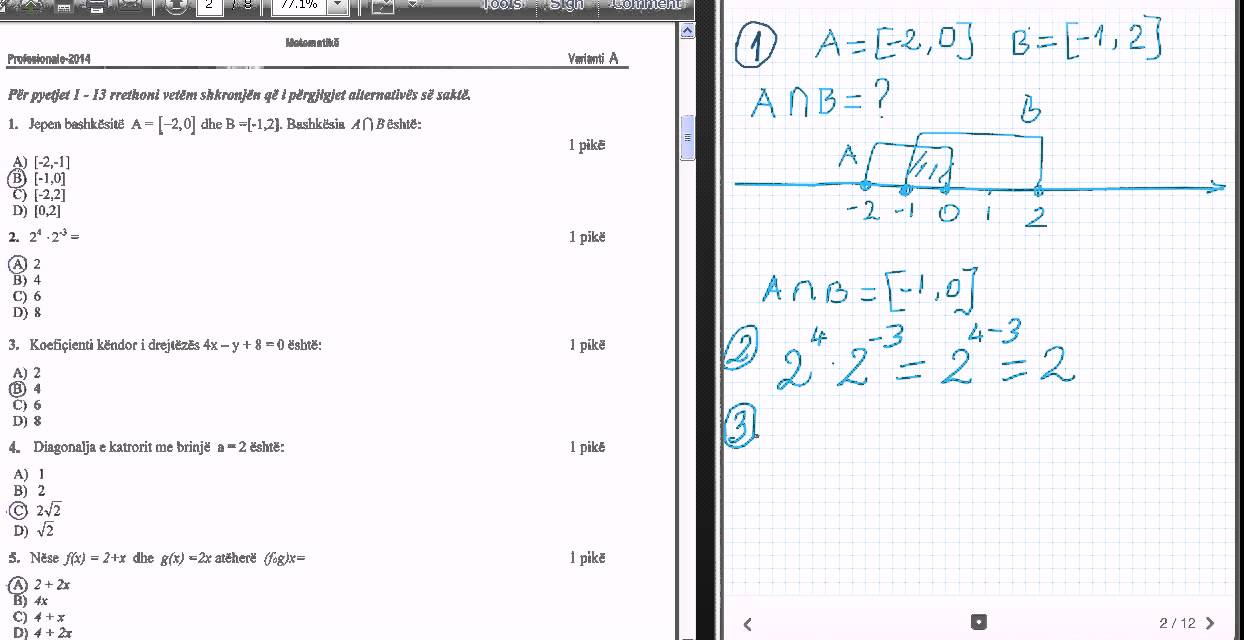 2 / 8 77.1% Tools Sign Comment
Matematikë
Profesionale-2014 Varianti A
Për pyetjet 1 - 13 rrethoni vetëm shkronjën që i përgjigjet alternativës së saktë.
1. Jepen bashkësitë A = [−2,0] dhe B =[-1,2]. Bashkësia A ⋂ B është:
1 pikë
A) [-2,-1]
B) [-1,0]
C) [-2,2]
D) [0,2]
2. 2⁴ · 2⁻³ = 1 pikë
A) 2
B) 4
C) 6
D) 8
3. Koefiçienti këndor i drejtëzës 4x – y + 8 = 0 është: 1 pikë
A) 2
B) 4
C) 6
D) 8
4. Diagonalja e katrorit me brinjë a = 2 është: 1 pikë
A) 1
B) 2
C) 2√2
D) √2
5. Nëse f(x) = 2+x dhe g(x) =2x atëherë (fog)x= 1 pikë
A) 2 + 2x
B) 4x
C) 4 + x
D) 4 + 2x
1 A = [-2, 0] B = [-1, 2]
A ∩ B = ?
B
A
-2 -1 0 1 2
A ∩ B = [-1, 0]
2 2⁴ · 2⁻³ = 2⁴⁻³ = 2
3.
2 / 12